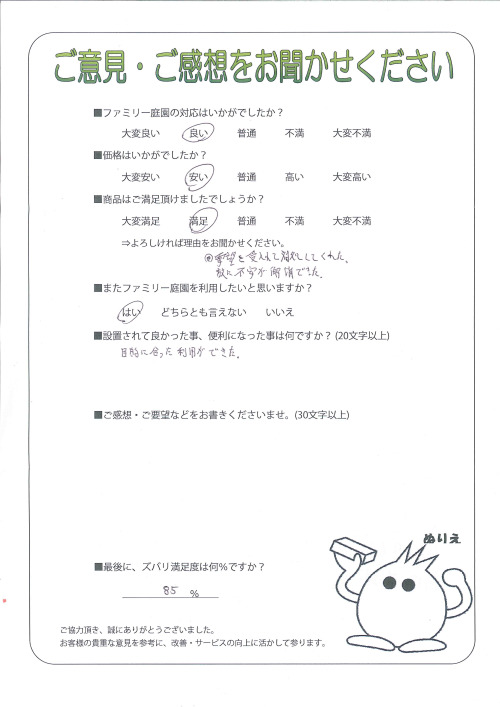 ご意見・ご感想をお聞かせください
■ファミリー庭園の対応はいかがでしたか？
大変良い 良い 普通 不満 大変不満
■価格はいかがでしたか？
大変安い 安い 普通 高い 大変高い
■商品はご満足頂けましたでしょうか？
大変満足 満足 普通 不満 大変不満
⇒よろしければ理由をお聞かせください。
要望を受入れて してくれた。
故に不安が解消できた。
■またファミリー庭園を利用したいと思いますか？
はい どちらとも言えない いいえ
■設置されて良かった事、便利になった事は何ですか？(20文字以上)
目的に合った利用ができた。
■ご感想・ご要望などをお書きくださいませ。(30文字以上)
ぬりえ
■最後に、ズバリ満足度は何%ですか？
85 %
ご協力頂き、誠にありがとうございました。
お客様の貴重な意見を参考に、改善・サービスの向上に活かして参ります。